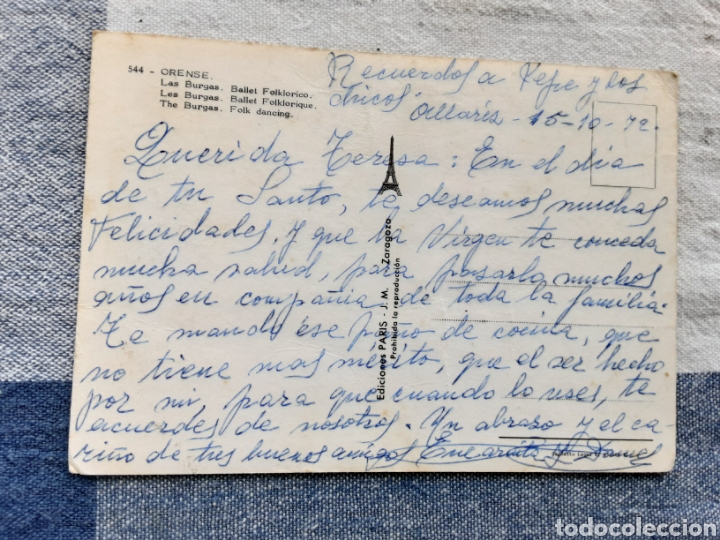 544 - ORENSE.
Las Burgas. Ballet Folklorico.
Les Burgas. Ballet Folklorique.
The Burgas. Folk dancing.
Recuerdos a Pepe y los
chicos Allariz - 15-10-72.
Querida Teresa: En el dia
de tu Santo, te deseamos muchas
Felicidades. Y que la Virgen te conceda
mucha salud, para pasarla muchos
años en compañia de toda la familia.
Te mando ése paño de cocina, que
no tiene mas mérito, que el ser hecho
por mi, para que cuando lo uses, te
acuerdes de nosotros. Un abraso y el ca-
riño de tus buenos amigos Encarnita y
Ediciones PARIS - J. M. - Zaragoza
Prohibida la reproducción
todocoleccion